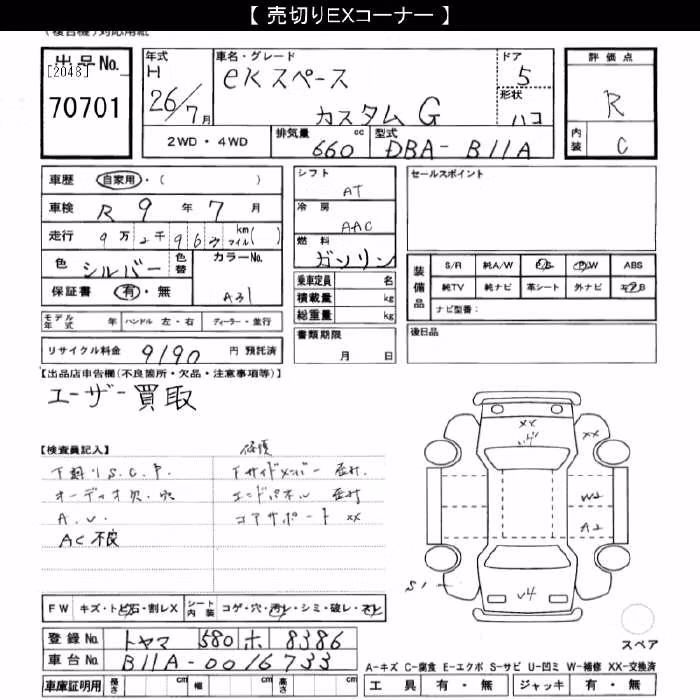 【 売切りEXコーナー 】
出品No.
[2048]
70701
年式
H
26/7月
車名・グレード
ekスペース
カスタム G
ドア
5
形状
ハコ
評価点
R
内装
C
2WD・4WD
排気量
660 cc
型式
DBA- B11A
車歴 自家用・( )
車検 R 9 年 7 月
走行 9万2千96 km マイル( )
色 シルバー
色替
カラーNo.
A31
保証書 有・無
モデル年式 年 ハンドル 左・右 ディーラー・並行
リサイクル料金 9190 円 預託済
シフト
AT
冷房
AAC
燃料
ガソリン
乗車定員 名
積載量 kg
総重量 kg
書類期限
月 日
セールスポイント
装備品
S/R 純A/W P/S P/W ABS
純TV 純ナビ 革シート 外ナビ エアB
ナビ型番:
後日品
【出品店申告欄(不良箇所・欠品・注意事項等)】
ユーザー買取
【検査員記入】
修復
下廻りS.C.P.
オーディオ欠.穴
A.U.
AC不良
Fサイドメンバー 歪村.
エンドパネル 歪村
コアサポート XX
XX
XX
W2
A2
S1
U4
スペア
FW キズ・トビ石・割レX シート内装 コゲ・穴・汚レ・シミ・破レ・スレ
登録No. トヤマ 580 ホ 8386
車台No. B11A-0016733
車庫証明用 長さ cm 幅 cm 高さ cm
A-キズ C-腐食 E-エクボ S-サビ U-凹ミ W-補修 XX-交換済
工具 有・無 ジャッキ 有・無